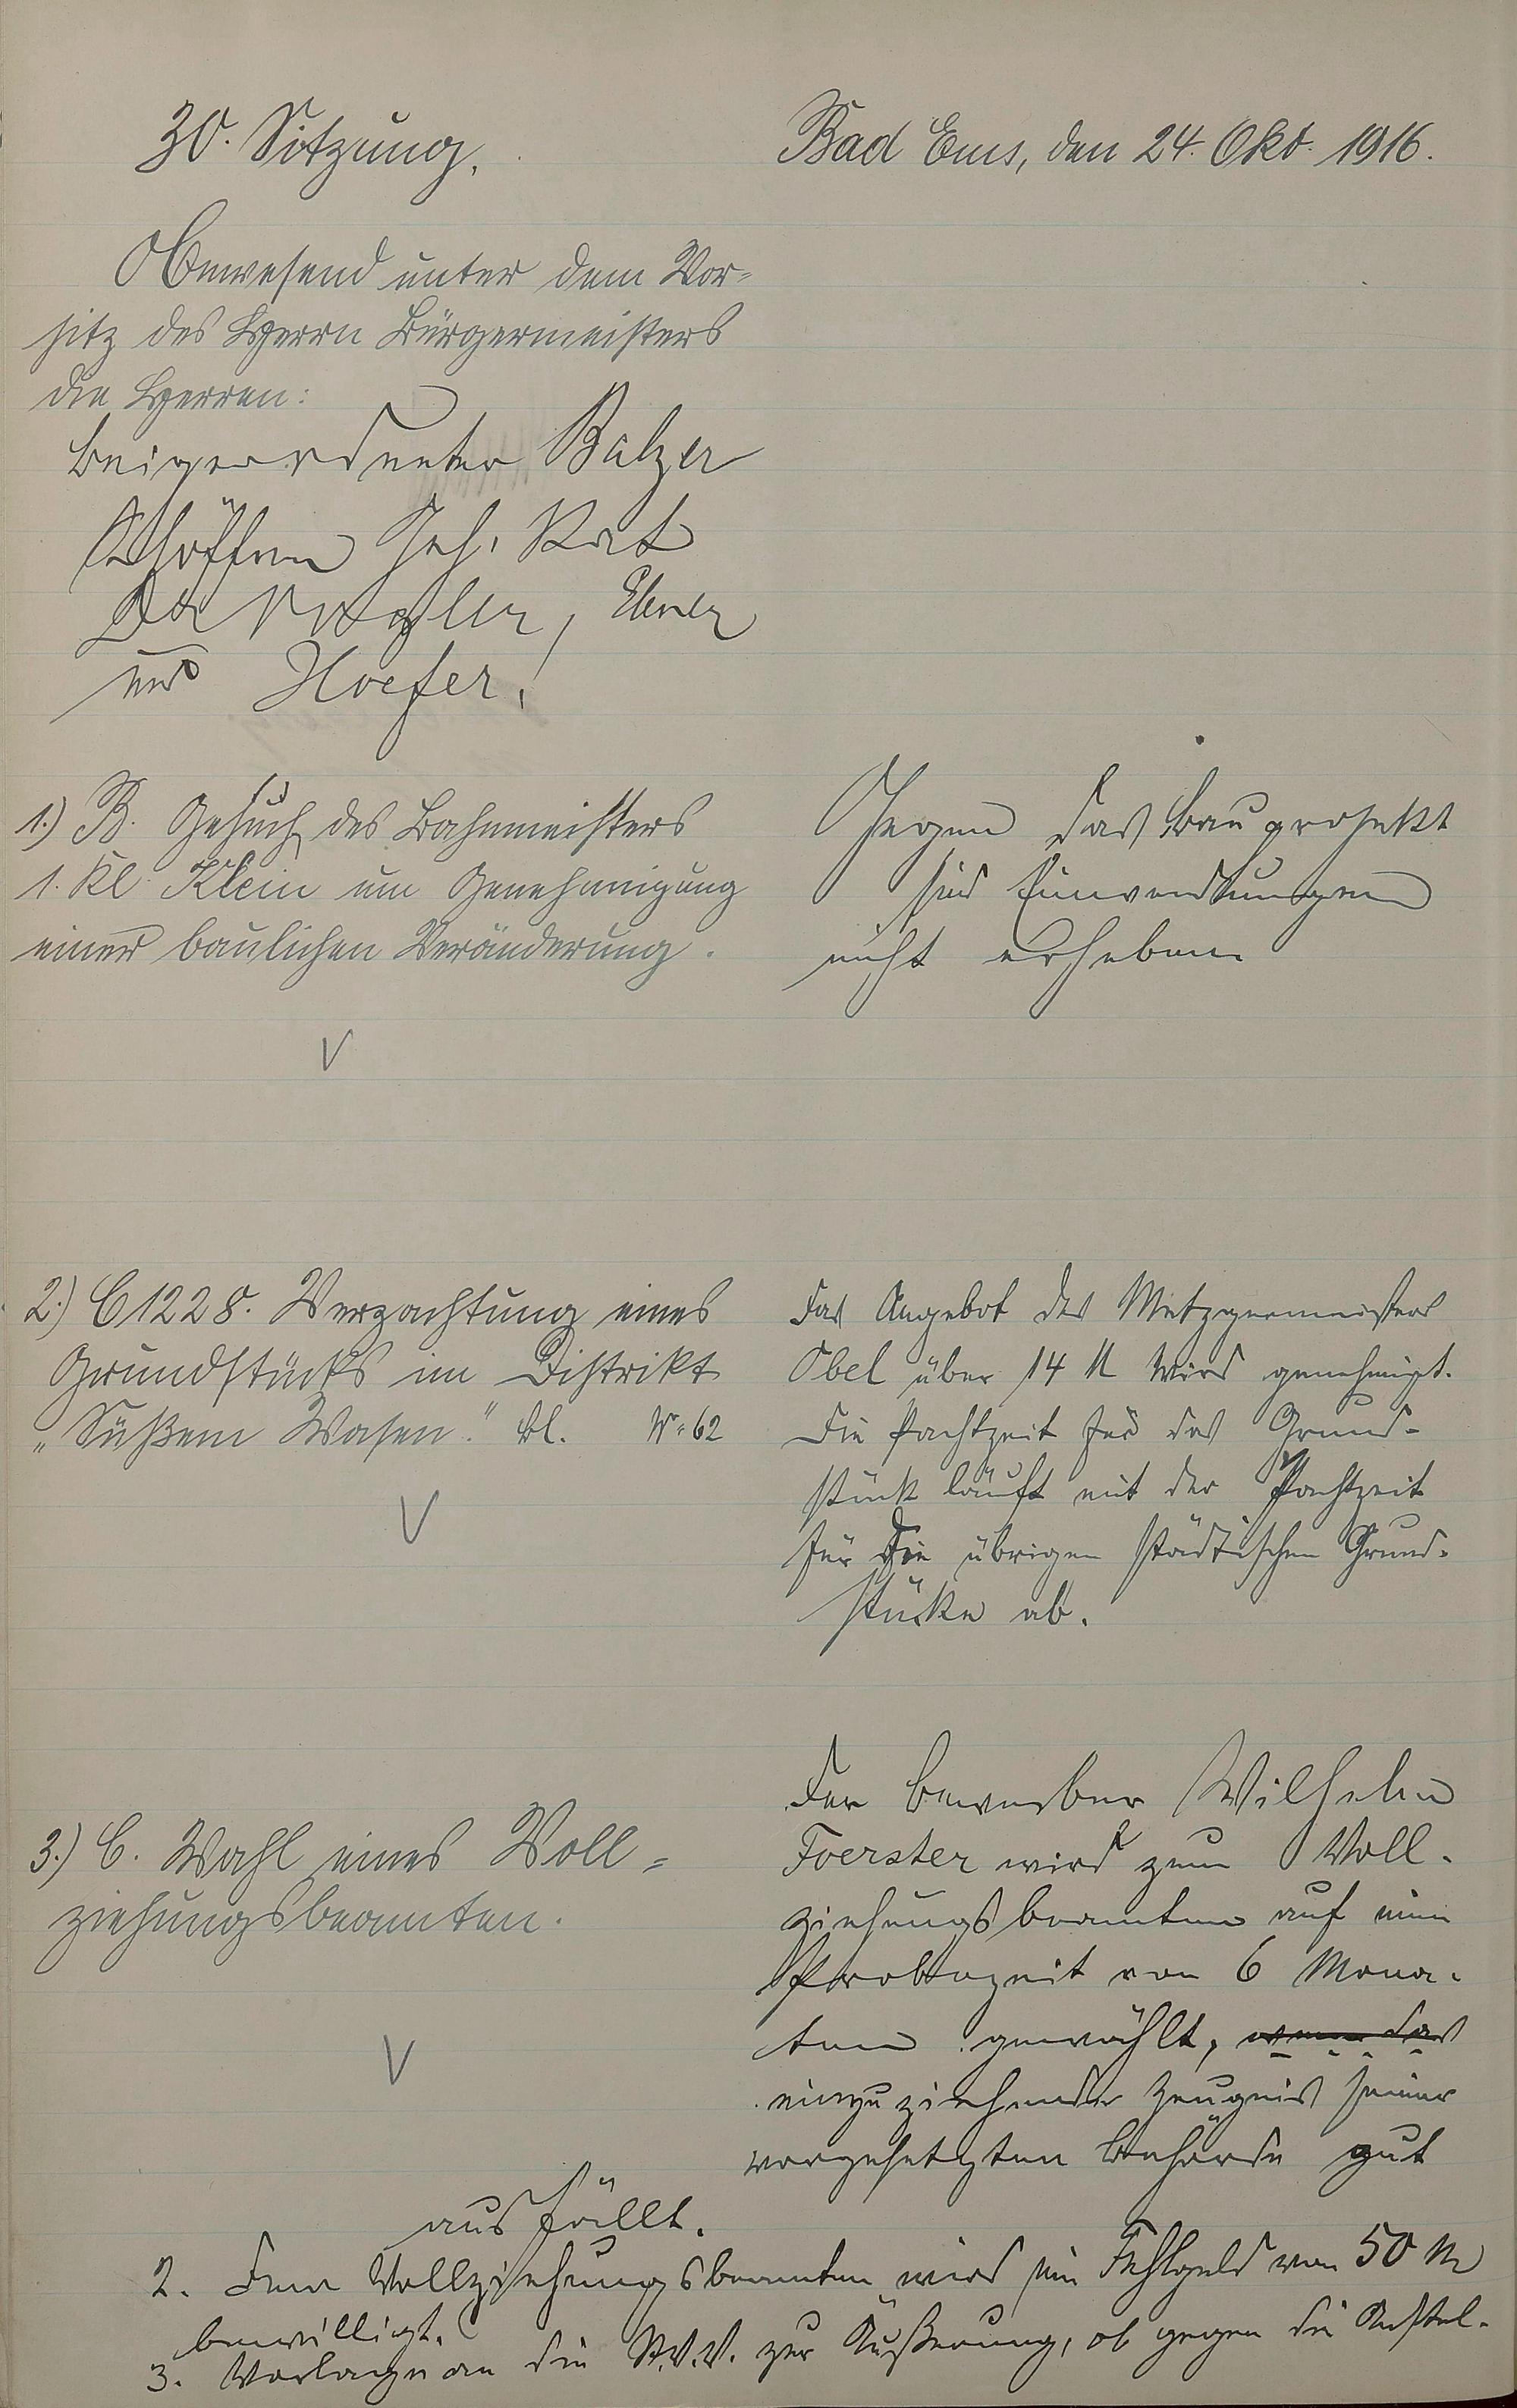 30. Sitzung.
Bad Ems, den 24. Okt. 1916.
Anwesend unter dem Vor-
sitz des Herrn Bürgermeisters
die Herren:
Beigeordneter Balzer
Schöffen Geh. Rat
Dr Vogler, Ebner
und Hoefer.
1.) B. Gesuch des Bahnmeisters
1. Kl. Klein um Genehmigung
einer baulichen Veränderung.
Gegen das Bauprojekt
sind Einwendungen
nicht erheben
V
2.) C 1228. Verpachtung eines
Grundstücks im Distrikt
„Süßem Wasen." Kl. Nr. 62
V
Das Angebot des Metzgermeisters
Obel über 14 M wird genehmigt.
Die Pachtzeit für das Grund-
stück läuft mit der Pachtzeit
für die übrigen städtischen Grund-
stücke ab.
3.) C. Wahl eines Voll-
ziehungsbeamten.
V
Der Bewerber Wilhelm
Foerster wird zum Voll-
ziehungsbeamten auf eine
Probezeit von 6 Mona-
ten gewählt, wenn das
einzuziehende Zeugnis seiner
vorgesetzten Behörde gut
ausfällt.
2. Dem Vollziehungsbeamten wird ein Fehlgeld von 50 M
bewilligt.
3. Vorlage an die St.V.V. zur Äußerung, ob gegen die Anstel-